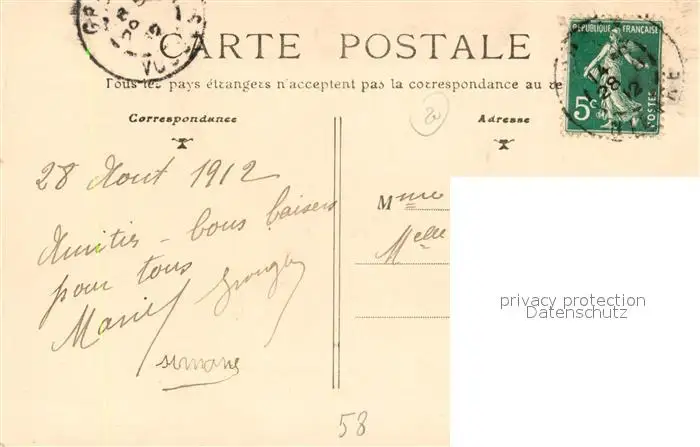 CARTE POSTALE
Tous les pays étrangers n'acceptent pas la correspondance au
RÉPUBLIQUE FRANÇAISE
5c
POSTES
Correspondance
Adresse
20
28 Aout 1912
Amitiés - bons baisers
pour tous
Marie
Mme
Melle
privacy protection
Datenschutz
58